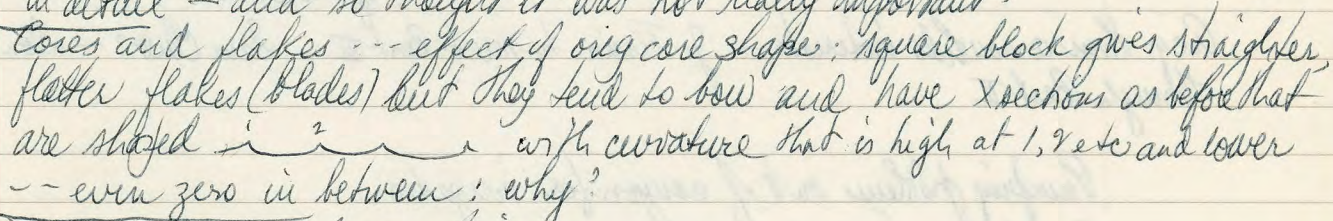 in detail — and so thought it was not really important.
Cores and flakes --- effect of orig core shape : square block gives straighter,
flatter flakes (blades) but they tend to bow and have Xsections as before that
are shaped 1 2 with curvature that is high at 1, 2 etc and lower
-- even zero in between : why?